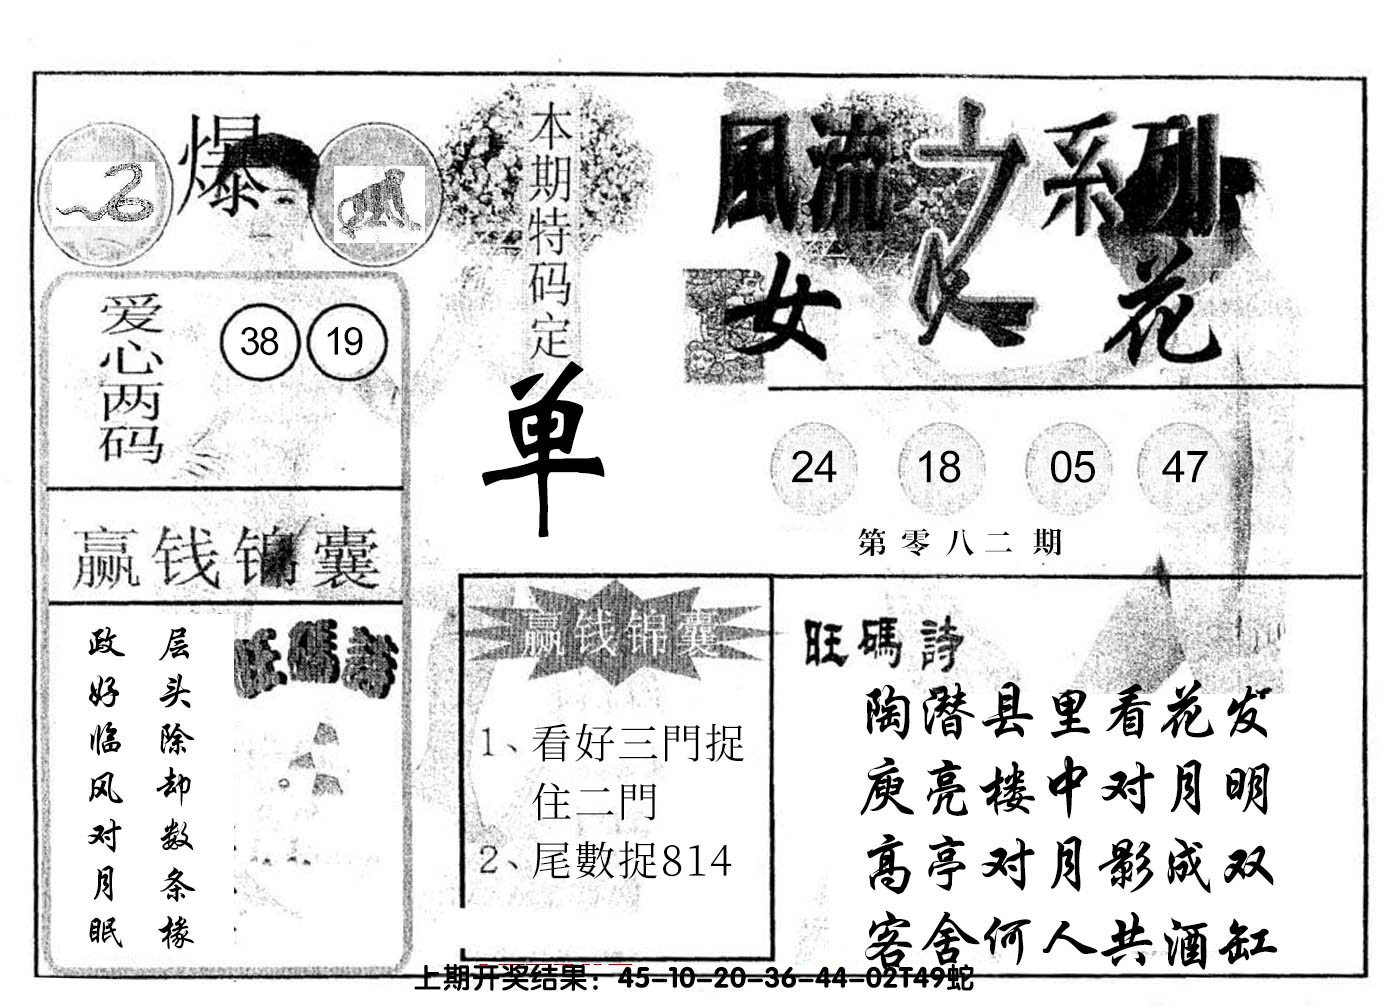 爆
本期特码定
单
風流之系列
女人花
爱心两码
38 19
24 18 05 47
第零八二期
赢钱锦囊
旺碼詩
层头除却数条椽
政好临风对月眠
赢钱锦囊
1、看好三門捉
住二門
2、尾數捉814
旺碼詩
陶潜县里看花发
庾亮楼中对月明
高亭对月影成双
客舍何人共酒缸
上期开奖结果：45-10-20-36-44-02T49蛇